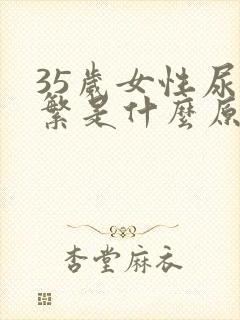 35歲女性尿
繁是什麼原
杏堂麻衣